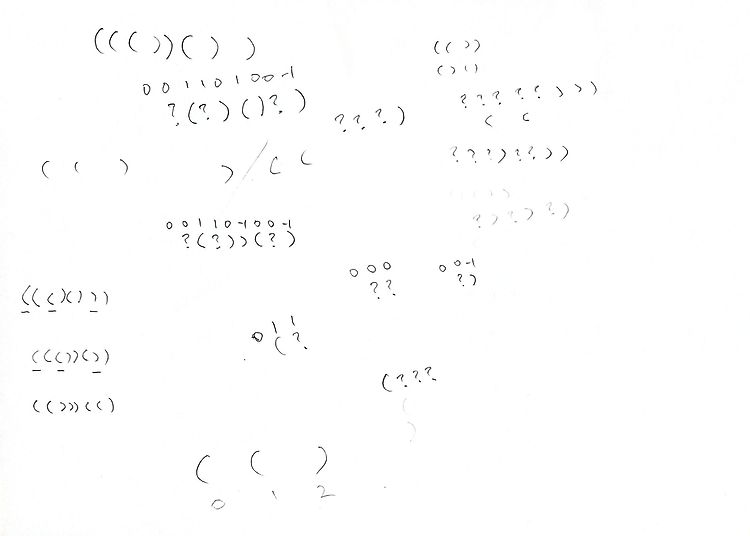 ((())())
(())
()()
0 0 1 1 0 1 0 0 -1
?(?)()?)
???)
?????)))
( (
( ( )
) / ( (
???)??))
0 0 1 1 0 -1 0 0 -1
?(?))(?)
?)?)?)
0 0 0
??
0 0 -1
?)
((()()))
0 1 1
(?
((())())
(???
(
)
(()))(()
( ( )
0 1 2